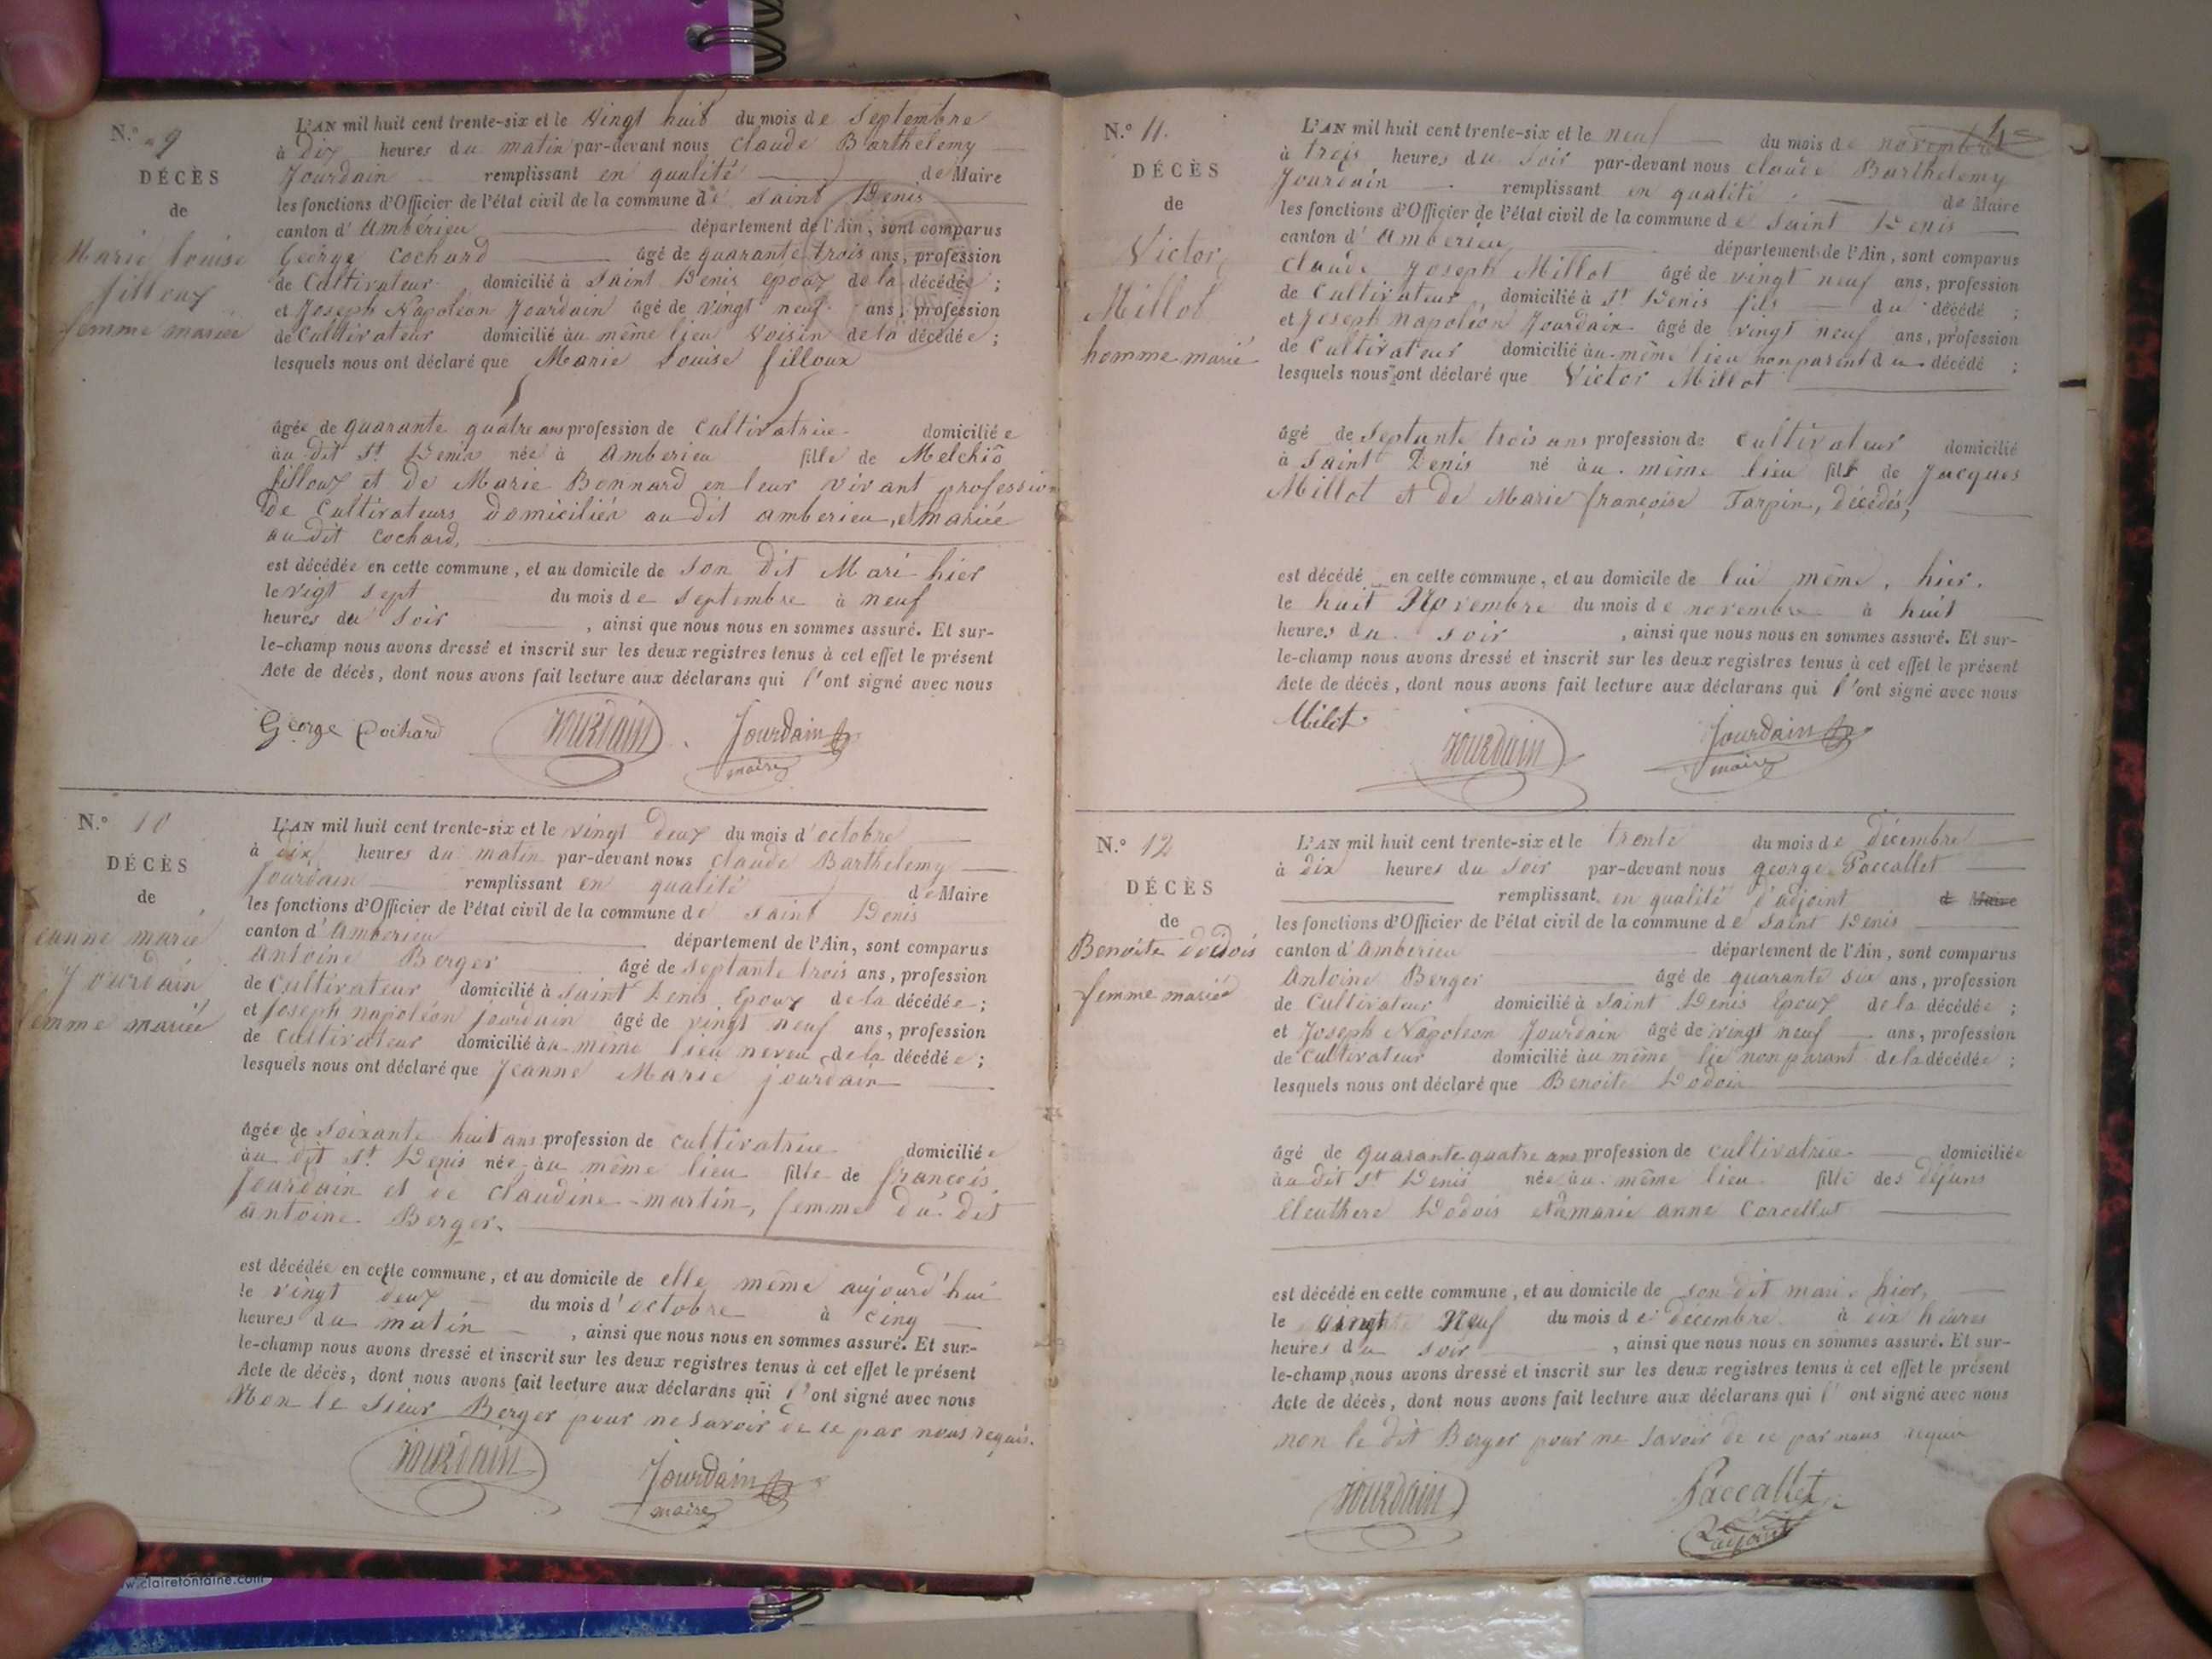 N.º 9
DÉCÈS
de
Marie Louise
filloux
femme mariée
L'AN mil huit cent trente-six et le vingt huit du mois de Septembre
à Dix heures du matin par-devant nous Claude Barthelemy
Jourdain remplissant en qualité de Maire
les fonctions d'Officier de l'état civil de la commune de Saint Denis
canton d'Ambérieu département de l'Ain, sont comparus
George Cochard âgé de quarante trois ans, profession
de Cultivateur domicilié à Saint Denis epoux de la décédée ;
et Joseph Napoléon Jourdain âgé de vingt neuf ans, profession
de Cultivateur domicilié au même lieu Voisin de la décédée ;
lesquels nous ont déclaré que Marie Louise filloux
âgée de quarante quatre ans profession de Cultivatrice domiciliée
au dit St Denis née à Amberieu fille de Melchiō
filloux et de Marie Bonnard en leur vivant profession
De Cultivateurs Domiciliés au dit amberieu, et mariée
au dit Cochard,
est décédée en cette commune, et au domicile de son dit Mari hier
le vigt sept du mois de Septembre à neuf
heures du Soir , ainsi que nous nous en sommes assuré. Et sur-
le-champ nous avons dressé et inscrit sur les deux registres tenus à cet effet le présent
Acte de décès, dont nous avons fait lecture aux déclarans qui l'ont signé avec nous
George Cochard Jourdain Jourdain
maire
N.º 10
DÉCÈS
de
eanne marie
Jourdain
femme mariée
L'AN mil huit cent trente-six et le vingt Deux du mois d'octobre
à dix heures du matin par-devant nous Claude Barthelemy
Jourdain remplissant en qualité de Maire
les fonctions d'Officier de l'état civil de la commune de Saint Denis
canton d'Amberieu département de l'Ain, sont comparus
Antoine Berger âgé de septante trois ans, profession
de Cultivateur domicilié à Saint Denis Epoux de la décédée ;
et Joseph napoléon Jourdain âgé de vingt neuf ans, profession
de Cultivateur domicilié au même lieu neveu de la décédée ;
lesquels nous ont déclaré que Jeanne Marie jourdain
âgée de Soixante huit ans profession de cultivatrice domiciliée
au dit St Denis née au même lieu fille de françois
Jourdain et de Claudine martin, femme du dit
antoine Berger.
est décédée en cette commune, et au domicile de elle même aujourd'hui
le vingt deux du mois d'octobre à cinq
heures du matin , ainsi que nous nous en sommes assuré. Et sur-
le-champ nous avons dressé et inscrit sur les deux registres tenus à cet effet le présent
Acte de décès, dont nous avons fait lecture aux déclarans qui l'ont signé avec nous
Non le Sieur Berger pour ne savoir de ce par nous requis.
Jourdain Jourdain
maire
N.º 11.
DÉCÈS
de
Victor
Millot
homme marié
L'AN mil huit cent trente-six et le neuf du mois de novembre
à trois heures du Soir par-devant nous Claude Barthelemy
Jourdain remplissant en qualité de Maire
les fonctions d'Officier de l'état civil de la commune de Saint Denis
canton d'Amberieu département de l'Ain, sont comparus
Claude Joseph Millot âgé de vingt neuf ans, profession
de Cultivateur, domicilié à St Denis fils du décédé ;
et Joseph Napoléon Jourdain âgé de vingt neuf ans, profession
de Cultivateur domicilié au même lieu non parent du décédé ;
lesquels nous ont déclaré que Victor Millot
âgé de Septante trois ans profession de cultivateur domicilié
à Saint Denis né au même lieu fils de Jacques
Millot et de Marie françoise Tarpin, décédés,
est décédé en cette commune, et au domicile de lui même, hier.
le huit Novembre du mois de novembre à huit
heures du soir , ainsi que nous nous en sommes assuré. Et sur-
le-champ nous avons dressé et inscrit sur les deux registres tenus à cet effet le présent
Acte de décès, dont nous avons fait lecture aux déclarans qui l'ont signé avec nous
Milot Jourdain Jourdain
maire
N.º 12
DÉCÈS
de
Benoite dodois
femme mariée
L'AN mil huit cent trente-six et le trente du mois de décembre
à dix heures du Soir par-devant nous george Paccallet
remplissant en qualité d'adjoint de Maire
les fonctions d'Officier de l'état civil de la commune de Saint Denis
canton d'Amberieu département de l'Ain, sont comparus
Antoine Berger âgé de quarante six ans, profession
de Cultivateur domicilié à Saint Denis Epoux de la décédée ;
et Joseph Napoleon Jourdain âgé de vingt neuf ans, profession
de Cultivateur domicilié au même lie non parant de la décédée ;
lesquels nous ont déclaré que Benoite Dodois
âgé de quarante quatre ans profession de cultivatrice domiciliée
au dit St Denis née au même lieu fille des Défunts
Eleuthere Dodois marie anne Corcellut
est décédé en cette commune, et au domicile de son dit mari hier,
le vingt Neuf du mois de decembre à dix heures
heures du soir , ainsi que nous nous en sommes assuré. Et sur-
le-champ nous avons dressé et inscrit sur les deux registres tenus à cet effet le présent
Acte de décès, dont nous avons fait lecture aux déclarans qui l'ont signé avec nous
non le dit Berger pour ne savoir de ce par nous requis
Jourdain Paccallet
adjoint
www.clairefontaine.com